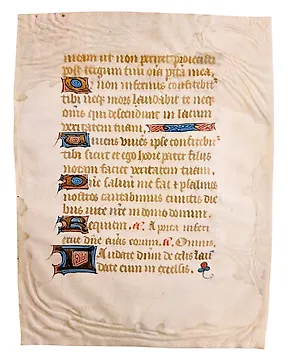 meam ut non periret proiecisti
post tergum tuum omnia pccata mea.
Q non infernus confitebit
tibi neqz mors laudabit te neqz
omnis qui descendunt in lacum
veritatem tuam.
Viuens viuens ipse confitebit
tibi sicut et ego hodie pater filiis
notam faciet veritatem tuam.
Dne saluum me fac et psalmos
nostros cantabimus cunctis die
bus vite nre in domo domini.
Requiem. a. A porta inferi
erue dne aias eorum. a. Omnis.
Laudate dnm de celis lau
date eum in excelsis.